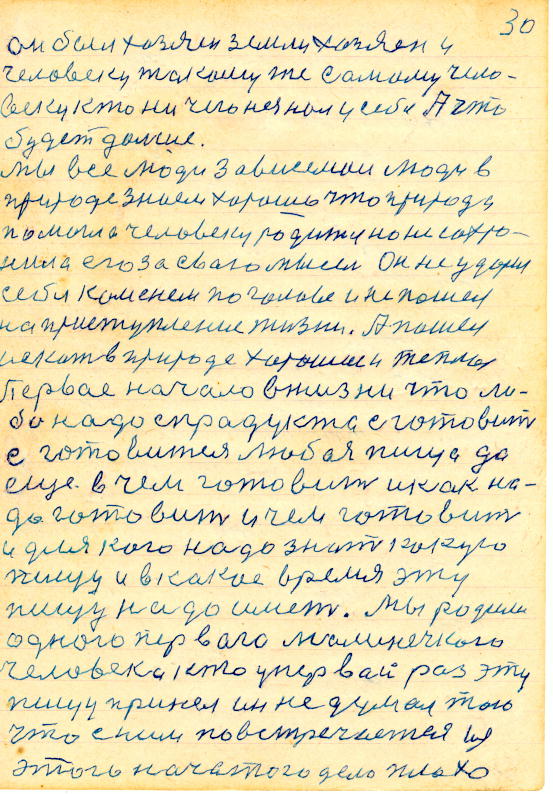 30
он был хозяен земли хозяен и
человеку такому же самому чело-
веку кто ни чего незнал у себя А что
будет дольше.
Мы все люди зависемаи люди в
природе знаем хорошо что природа
помогла человеку родится но не сохро-
нила его за сваю мысел Он не ударил
себя камнем по голове и не пошел
на приступление жизни. А пошел
искат в природе хорошое и теплое
Первае начало в жизни что ли-
бо надо с прадукта сготовит
с готовится любая пища да
еще в чем готовит и как на-
до готовит и чем готовит
и для кого надо знат какую
пищу и в какое время эту
пищу надо имет. Мы родили
одного перваго малинечкого
человека кто у первай раз эту
пищу принел и не думал того
что с ним повстречается из
этого начатого дело плохо